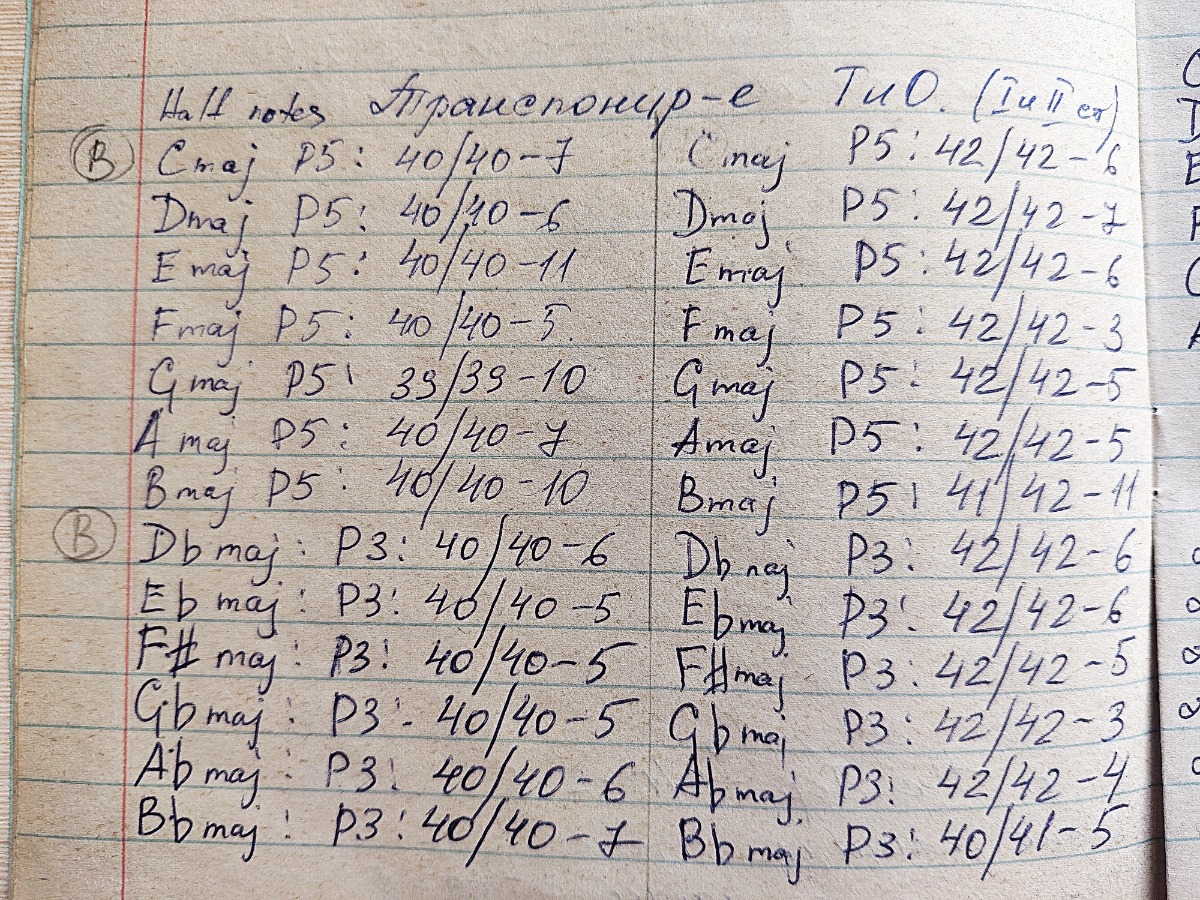 Half notes Транспонир-е ТиО. (I и II ст)
B Cmaj P5: 40/40-7 Cmaj P5: 42/42-6
Dmaj P5: 40/40-6 Dmaj P5: 42/42-7
Emaj P5: 40/40-11 Emaj P5: 42/42-6
Fmaj P5: 40/40-5 Fmaj P5: 42/42-3
Gmaj P5: 39/39-10 Gmaj P5: 42/42-5
Amaj P5: 40/40-7 Amaj P5: 42/42-5
Bmaj P5: 40/40-10 Bmaj P5: 41/42-11
B Dbmaj: P3: 40/40-6 Dbmaj P3: 42/42-6
Ebmaj: P3: 40/40-5 Ebmaj P3: 42/42-6
F#maj: P3: 40/40-5 F#maj P3: 42/42-5
Gbmaj: P3: 40/40-5 Gbmaj P3: 42/42-3
Abmaj: P3: 40/40-6 Abmaj P3: 42/42-4
Bbmaj: P3: 40/40-7 Bbmaj P3: 40/41-5